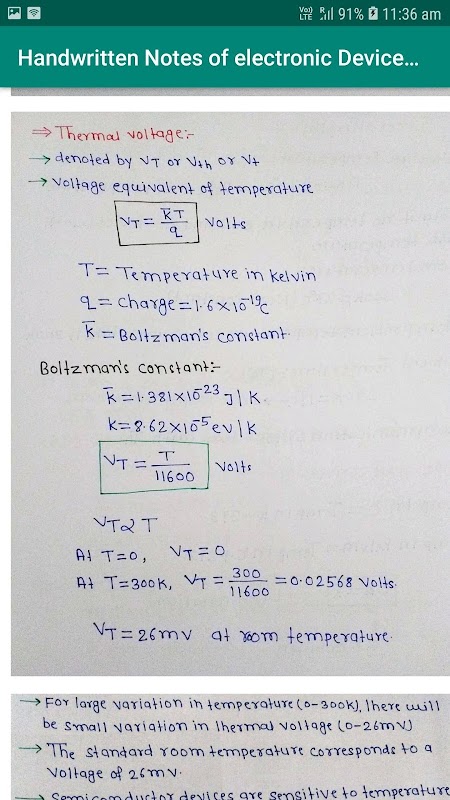 Vo))
LTE R 91% 11:36 am
Handwritten Notes of electronic Device...
⇒ Thermal voltage:-
→ denoted by VT or Vth or Vt
→ Voltage equivalent of temperature
VT = k̅T/q Volts
T = Temperature in kelvin
q = charge = 1.6×10⁻¹⁹C
k̅ = Boltzman's constant.
Boltzman's constant:-
k̅ = 1.381×10⁻²³ J/K.
k = 8.62×10⁻⁵ ev/k
VT = T/11600 Volts
VT ∝ T
At T=0, VT = 0
At T=300k, VT = 300/11600 = 0.02568 Volts.
VT = 26mv at room temperature.
→ For large variation in temperature (0-300k), there will
be small variation in thermal voltage (0-26mv)
→ The standard room temperature corresponds to a
voltage of 26mv.
→ Semiconductor devices are sensitive to temperature